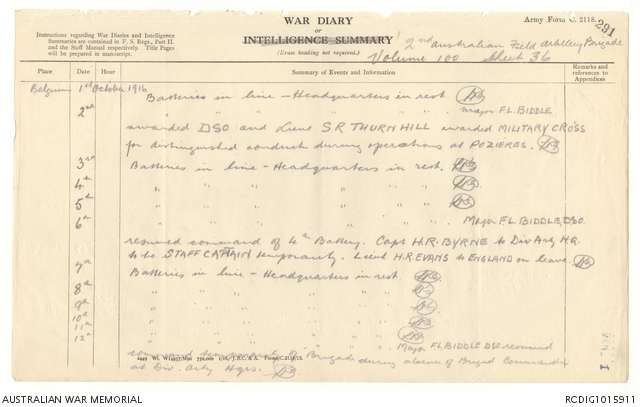 WAR DIARY
or
INTELLIGENCE SUMMARY
(Erase heading not required.)
Instructions regarding War Diaries and Intelligence
Summaries are contained in F. S. Regs., Part II.
and the Staff Manual respectively. Title Pages
will be prepared in manuscript.
Army Form C. 2118.
291
2nd Australian Field Artillery Brigade
Volume 100 Sheet 36
Place Date Hour Summary of Events and Information Remarks and references to Appendices
Belgium 1st October 1916 Batteries in line - Headquarters in rest
2nd " " " " Major F.L. BIDDLE
awarded DSO and Lieut S.R THURNHILL awarded MILITARY CROSS
for distinguished conduct during operations at POZIERES.
3rd Batteries in line - Headquarters in rest.
4th " " " "
5th " " " "
6th " " " " Major F.L. BIDDLE, DSO
resumed command of 4th Battery. Capt H.R. BYRNE to Div Arty H.Q.
to be STAFF CAPTAIN temporarily. Lieut H.R. EVANS to ENGLAND on leave.
7th Batteries in line - Headquarters in rest
8th " " " "
9th " " " "
10th " " " "
11th " " " "
12th " " " " Major F.L BIDDLE DSO resumed
command temporarily of Brigade during absence of Brigade Commander
at Div. Arty Hqrs.
AUSTRALIAN WAR MEMORIAL
RCDIG1015911